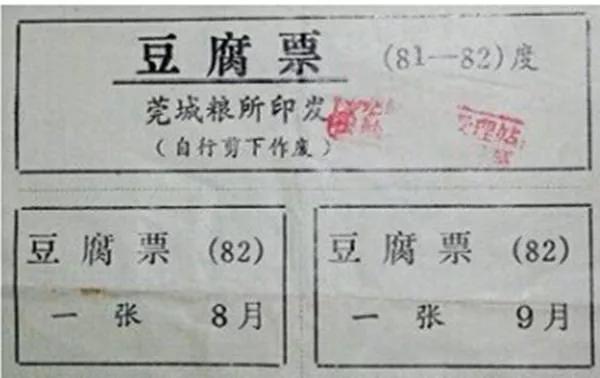 豆腐票 (81—82)度
莞城粮所印发
(自行剪下作废)
豆腐票 (82)
一张 8月
豆腐票 (82)
一张 9月